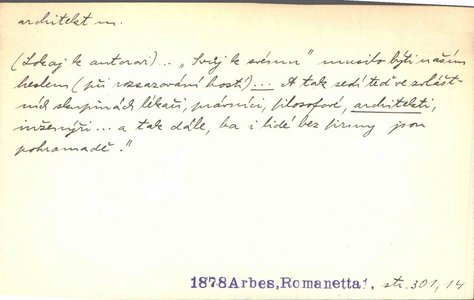 architekt m.
(Lokaj k autorovi)... „Svůj k svému" musilo býti naším
heslem (při rozsazování hostí)... A tak sedí teď ve zvlášt-
ních skupinách lékaři, právníci, filosofové, architekti,
inženýři... a tak dále, ba i lidé bez firmy jsou
pohromadě."
1878 Arbes, Romanetta 1, str. 301, 14